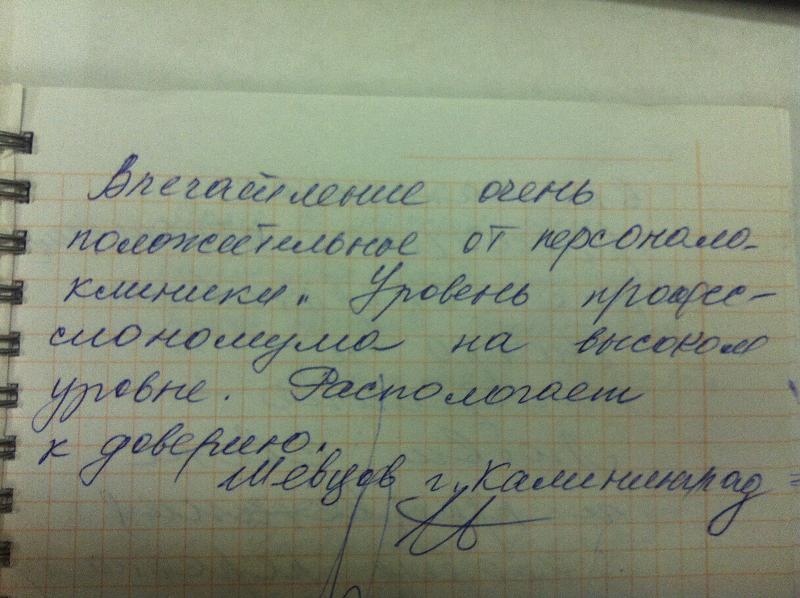 Впечатление очень
положительное от персонала
клиники. Уровень профес-
сионализма на высоком
уровне. Распологает
к доверию.
Шевцов г. Калининград